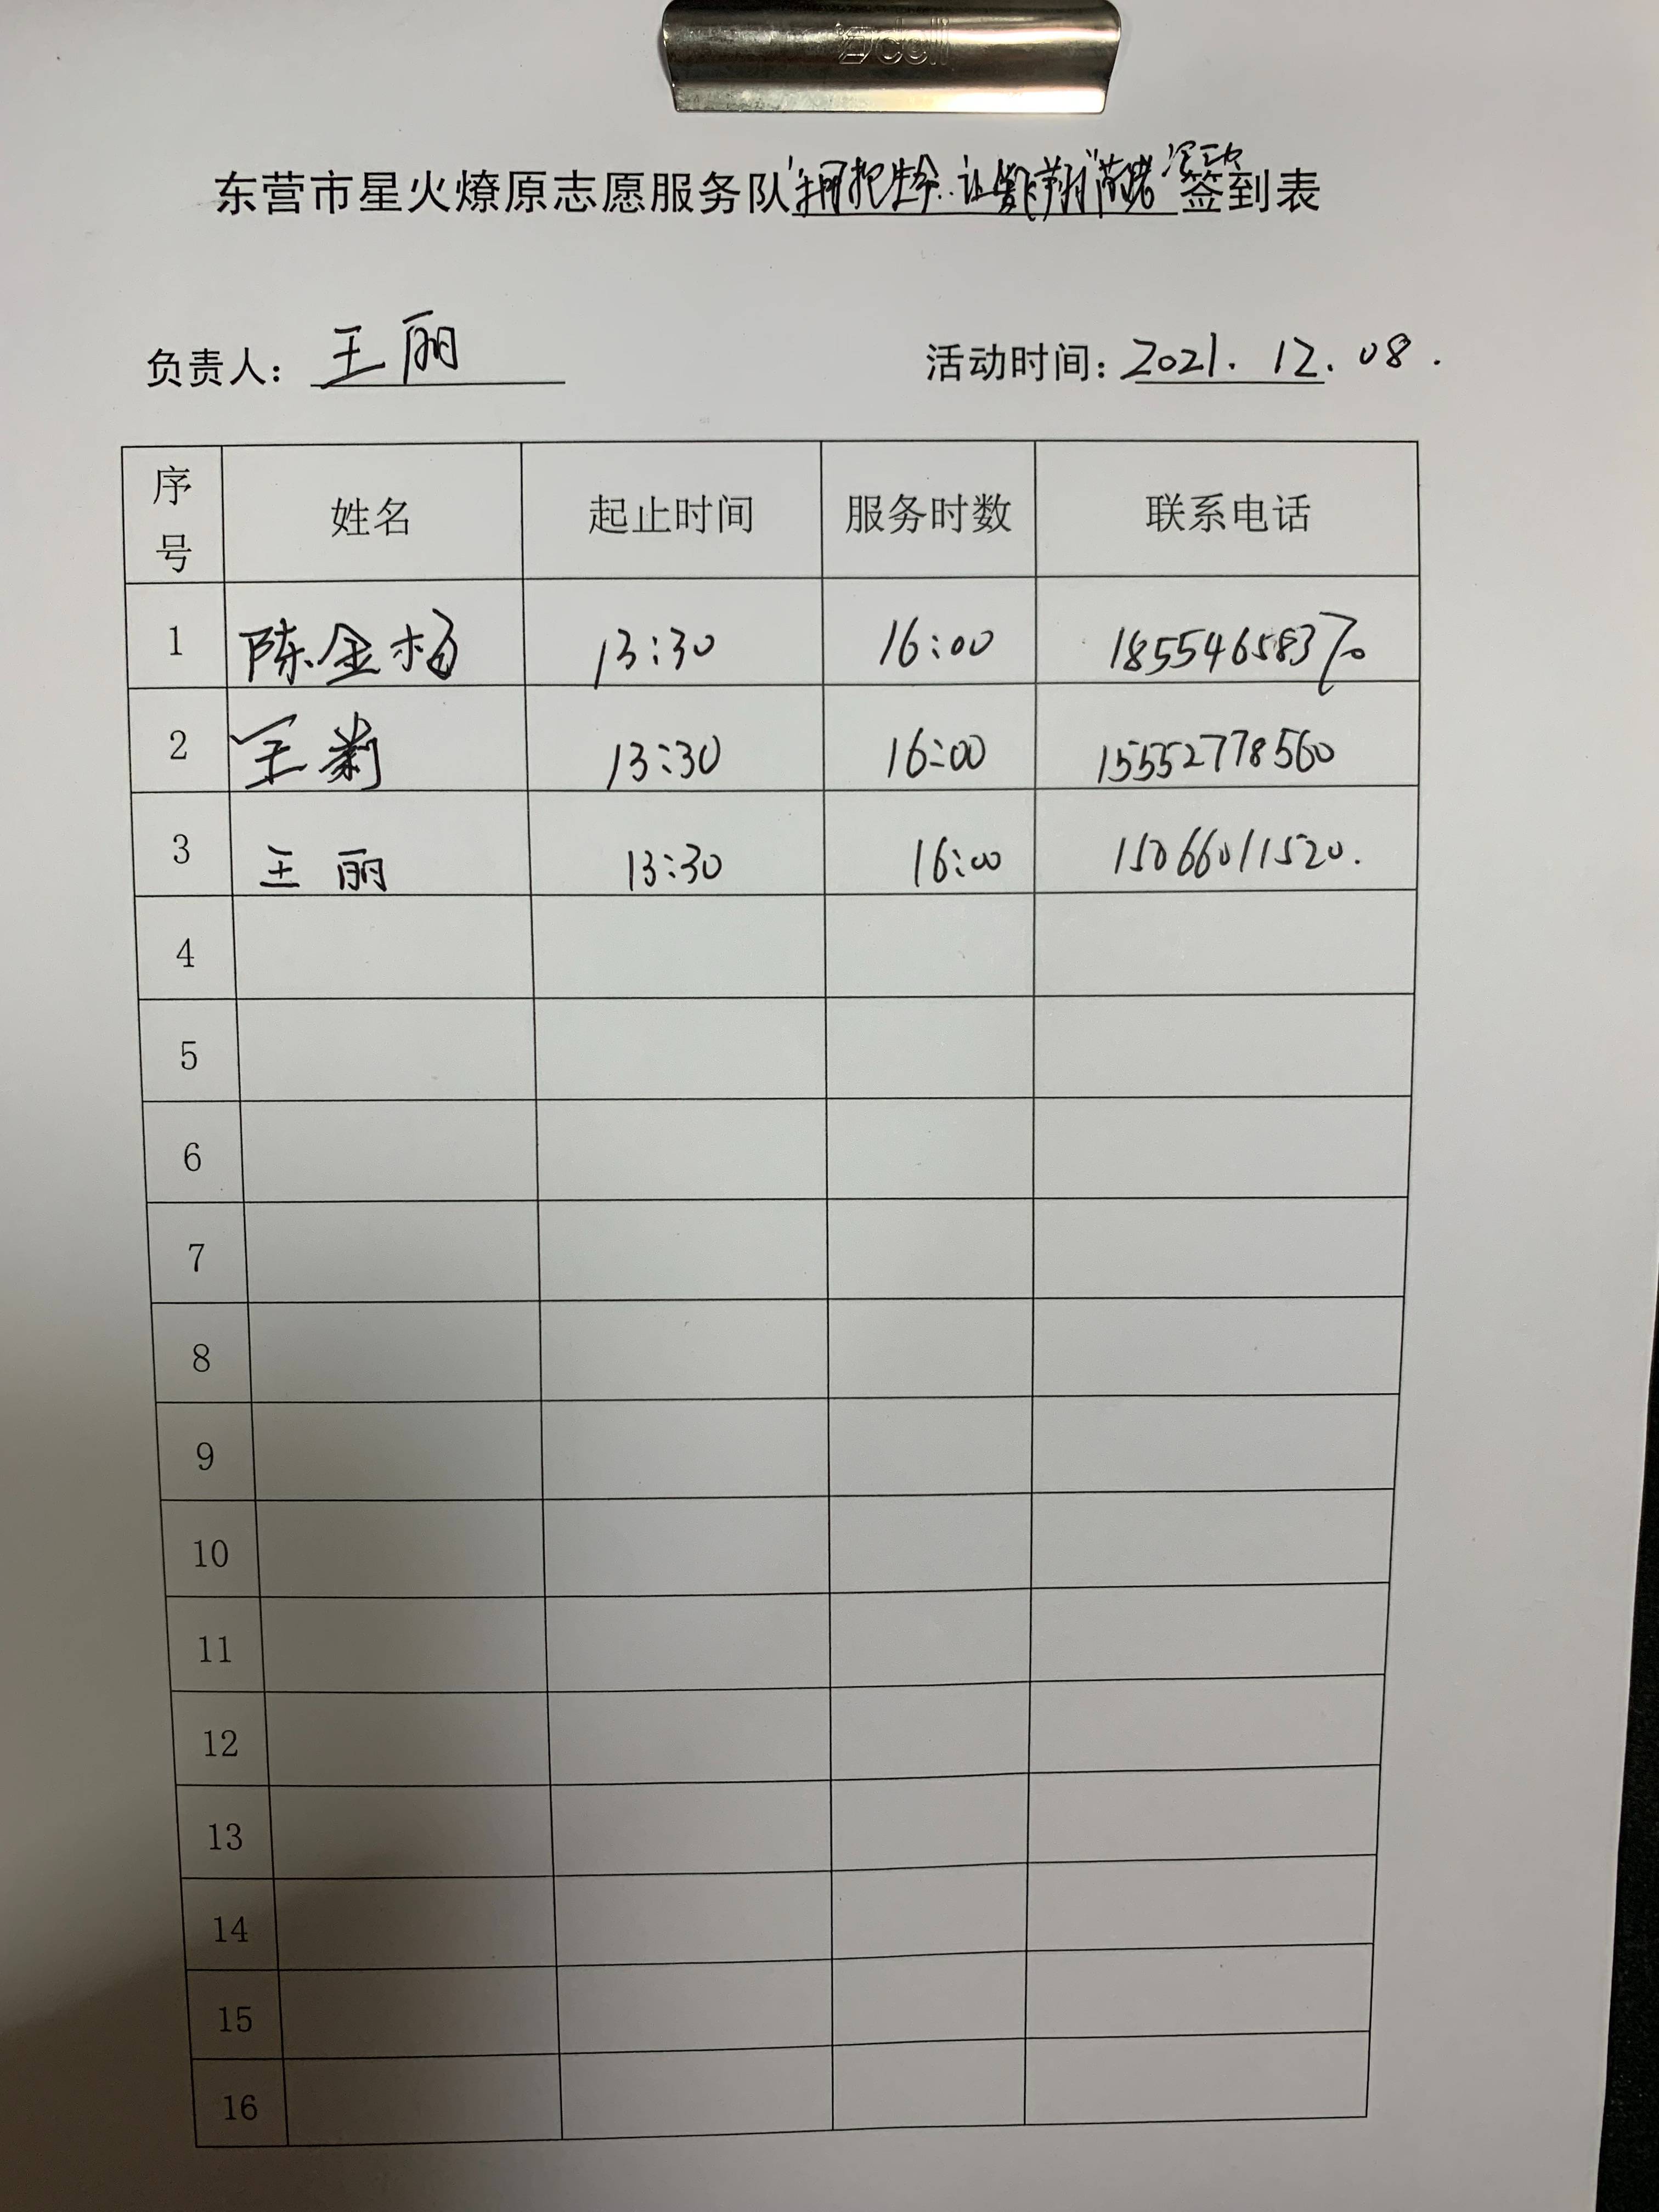 deli
东营市星火燎原志愿服务队"拥抱生命.让爱飞翔"签到表
负责人：王丽 活动时间：2021.12.08.
序号 姓名 起止时间 服务时数 联系电话
1 陈金杨 13:30 16:00 18554658370
2 王莉 13:30 16:00 15552778560
3 王丽 13:30 16:00 15066011520.
4
5
6
7
8
9
10
11
12
13
14
15
16